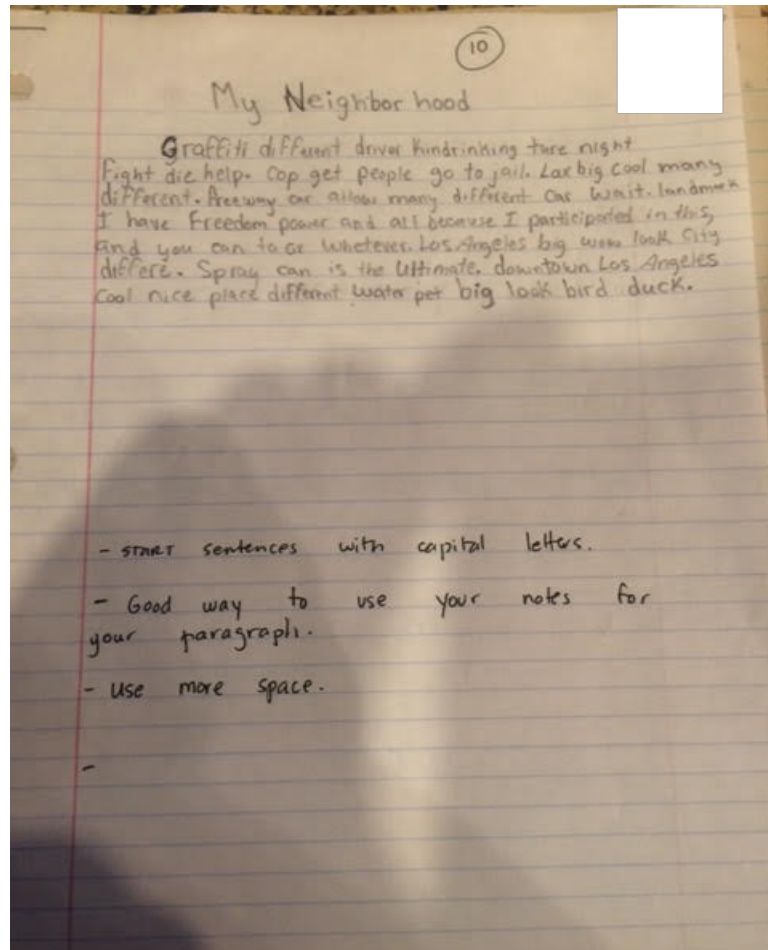 10
My Neighborhood
Graffiti different driver ture night
Fight die help. Cop get people go to jail. Lax big cool many
different. Freeway car allows many different car wait. landmark
I have Freedom power and all because I participated in this,
and you can to or whatever. Los Angeles big look City
differe. Spray can is the Ultimate. downtown Los Angeles
Cool nice place different water pet big look bird duck.
- START sentences with capital letters.
- Good way to use your notes for
your paragraph.
- use more space.
-